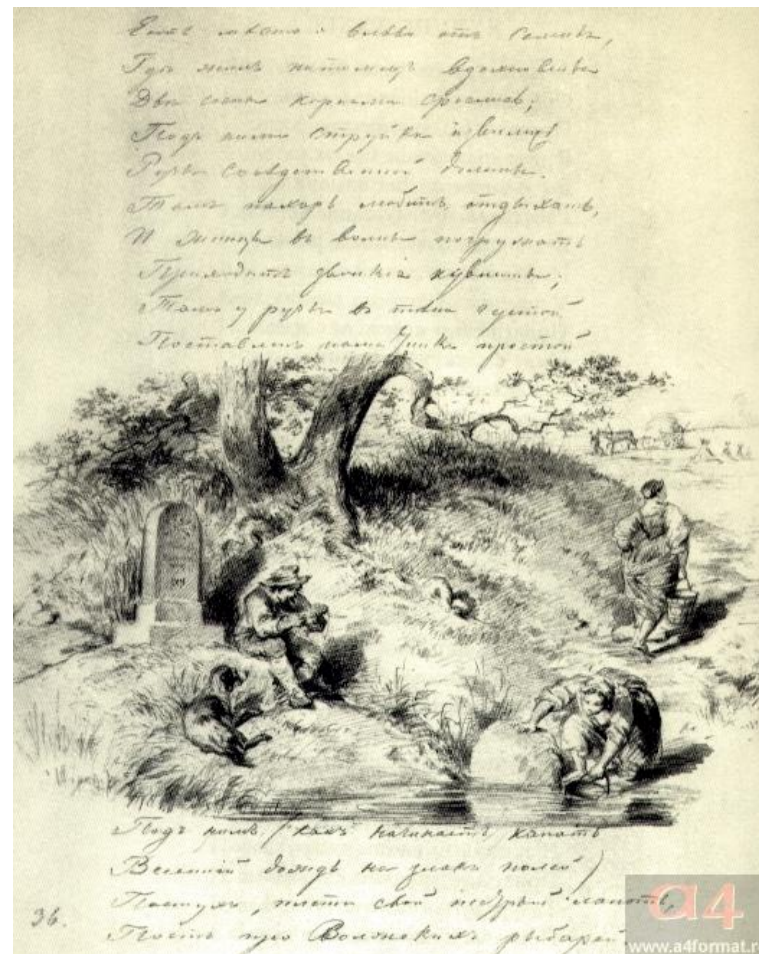 Есть мѣсто: влѣво отъ селенья,
Гдѣ жилъ питомецъ вдохновенья
Двѣ сосны корнями срослись;
Подъ ними струйки извились
Ручья сосѣдственной долины.
Тамъ пахарь любитъ отдыхать,
И жницы въ волны погружать
Приходятъ звонкія кувшины;
Тамъ у ручья въ тѣни густой
Поставленъ памятникъ простой
Подъ нимъ (какъ начинаетъ капать
Весенній дождь на злакъ полей)
Пастухъ, плетя свой пёстрый лапоть,
Поетъ про Волжскихъ рыбарей
36.
a4
www.a4format.r